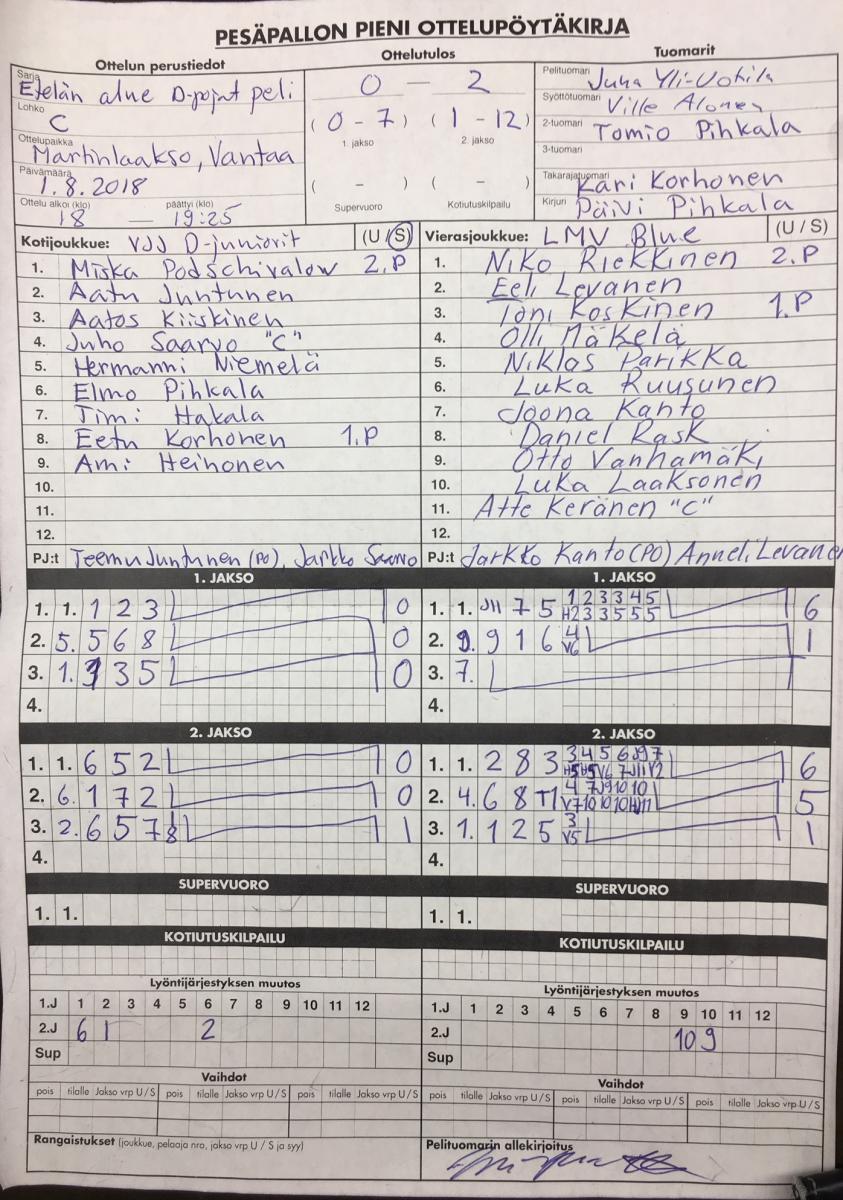 PESÄPALLON PIENI OTTELUPÖYTÄKIRJA
Ottelun perustiedot
Ottelutulos
Tuomarit
Sarja Etelän alue D-pojat peli
0 - 2
Pelituomari Juha Yli-Uotila
Lohko C
Syöttötuomari Ville Alonen
(0 - 7) (1 - 12)
1. jakso 2. jakso
2-tuomari Tomio Pihkala
Ottelupaikka Martinlaakso, Vantaa
3-tuomari
Päivämäärä 1.8.2018
( - ) ( - )
Takarajatuomari Kari Korhonen
Ottelu alkoi (klo) 18 — päättyi (klo) 19:25
Supervuoro Kotiutuskilpailu
Kirjuri Päivi Pihkala
Kotijoukkue: VJJ D-juniorit (U / S)
1. Miska Podschivalow 2.P
2. Aatu Juntunen
3. Aatos Kiiskinen
4. Juho Saarvo "C"
5. Hermanni Niemelä
6. Elmo Pihkala
7. Jimi Hakala
8. Eetu Korhonen 1.P
9. Ami Heinonen
10.
11.
12.
PJ:t Teemu Juntunen (PO), Jarkko Saarvo
Vierasjoukkue: LMV Blue (U / S)
1. Niko Riekkinen 2.P
2. Eeli Levanen
3. Toni Koskinen 1.P
4. Olli Mäkelä
5. Niklas Parikka
6. Luka Ruusunen
7. Joona Kanto
8. Daniel Rask
9. Otto Vanhamäki
10. Luka Laaksonen
11. Atte Keränen "C"
12.
PJ:t Jarkko Kanto (PO) Anneli Levanen
1. JAKSO
1. 1. 1 2 3 0
2. 5. 5 6 8 0
3. 1. 3 3 5 0
4.
1. JAKSO
1. 1. J11 7 5 1 2 3 3 4 5 6
H2 3 3 5 5 5
2. 9. 9 1 6 4 1
V6
3. 7.
4.
2. JAKSO
1. 1. 6 5 2 0
2. 6. 1 7 2 0
3. 2. 6 5 7 1
8
4.
2. JAKSO
1. 1. 2 8 3 3 4 5 6 J9 7 6
H5 H5 V6 7 J11 V2
2. 4. 6 8 T1 4 7 J9 10 10 5
V7 10 10 10 H11
3. 1. 1 2 5 3 1
V5
4.
SUPERVUORO
1. 1.
SUPERVUORO
1. 1.
KOTIUTUSKILPAILU
KOTIUTUSKILPAILU
Lyöntijärjestyksen muutos
1.J 1 2 3 4 5 6 7 8 9 10 11 12
2.J 6 1 2
Sup
Lyöntijärjestyksen muutos
1.J 1 2 3 4 5 6 7 8 9 10 11 12
2.J 10 9
Sup
Vaihdot
pois tilalle Jakso vrp U / S pois tilalle Jakso vrp U / S pois tilalle Jakso vrp U / S
Vaihdot
pois tilalle Jakso vrp U / S pois tilalle Jakso vrp U / S pois tilalle Jakso vrp U / S
Rangaistukset (joukkue, pelaaja nro, jakso vrp U / S ja syy)
Pelituomarin allekirjoitus